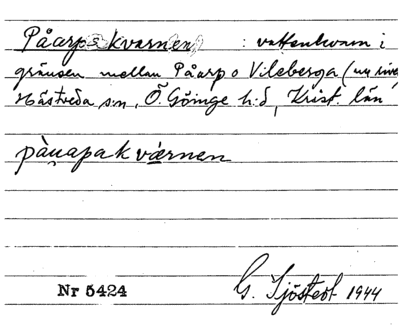 Påarps kvarnen : vattenkvarn i
gränsen mellan Påarp o Vileberga (nu
Hästveda sn, Ö. Göinge h:d, Krist. län
pàu̯apakværnen
Nr 5424
G. Sjöstedt 1944